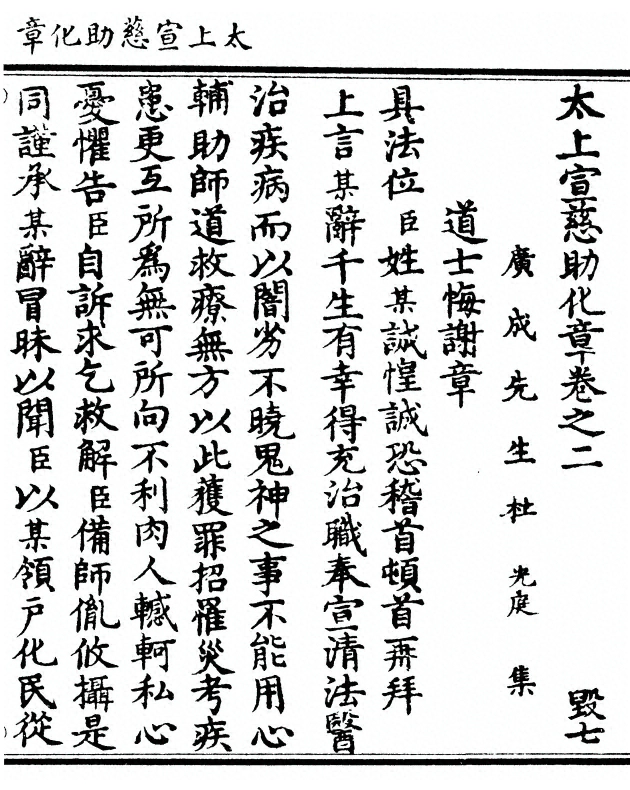 太上宣慈助化章
太上宣慈助化章卷之二
毀七
廣成先生杜光庭集
道士悔謝章
具法位臣姓某誠惶誠恐稽首頓首再拜
上言某辭千生有幸得充治職奉宣清法醫
治疾病而以闇劣不曉鬼神之事不能用心
輔助師道救療無方以此獲罪招罹災考疾
患更互所爲無可所向不利肉人轗軻私心
憂懼告臣自訴求乞救解臣備師胤攸攝是
同謹承某辭冒昧以聞臣以某領戶化民從